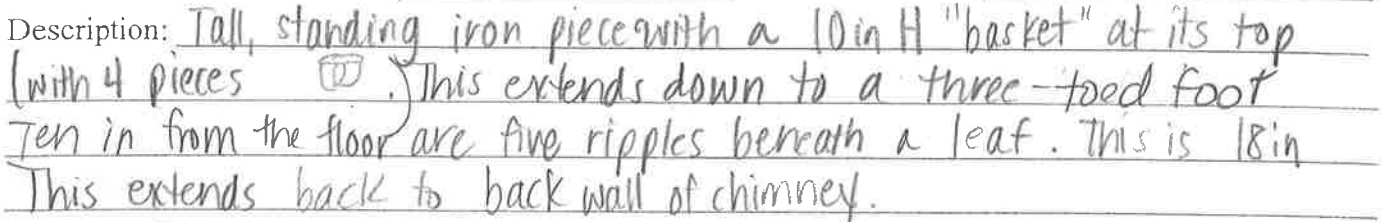 Description: Tall, standing iron piece with a 10 in H "basket" at its top
(with 4 pieces .) This extends down to a three-toed foot
Ten in from the floor are five ripples beneath a leaf. This is 18 in
This extends back to back wall of chimney.